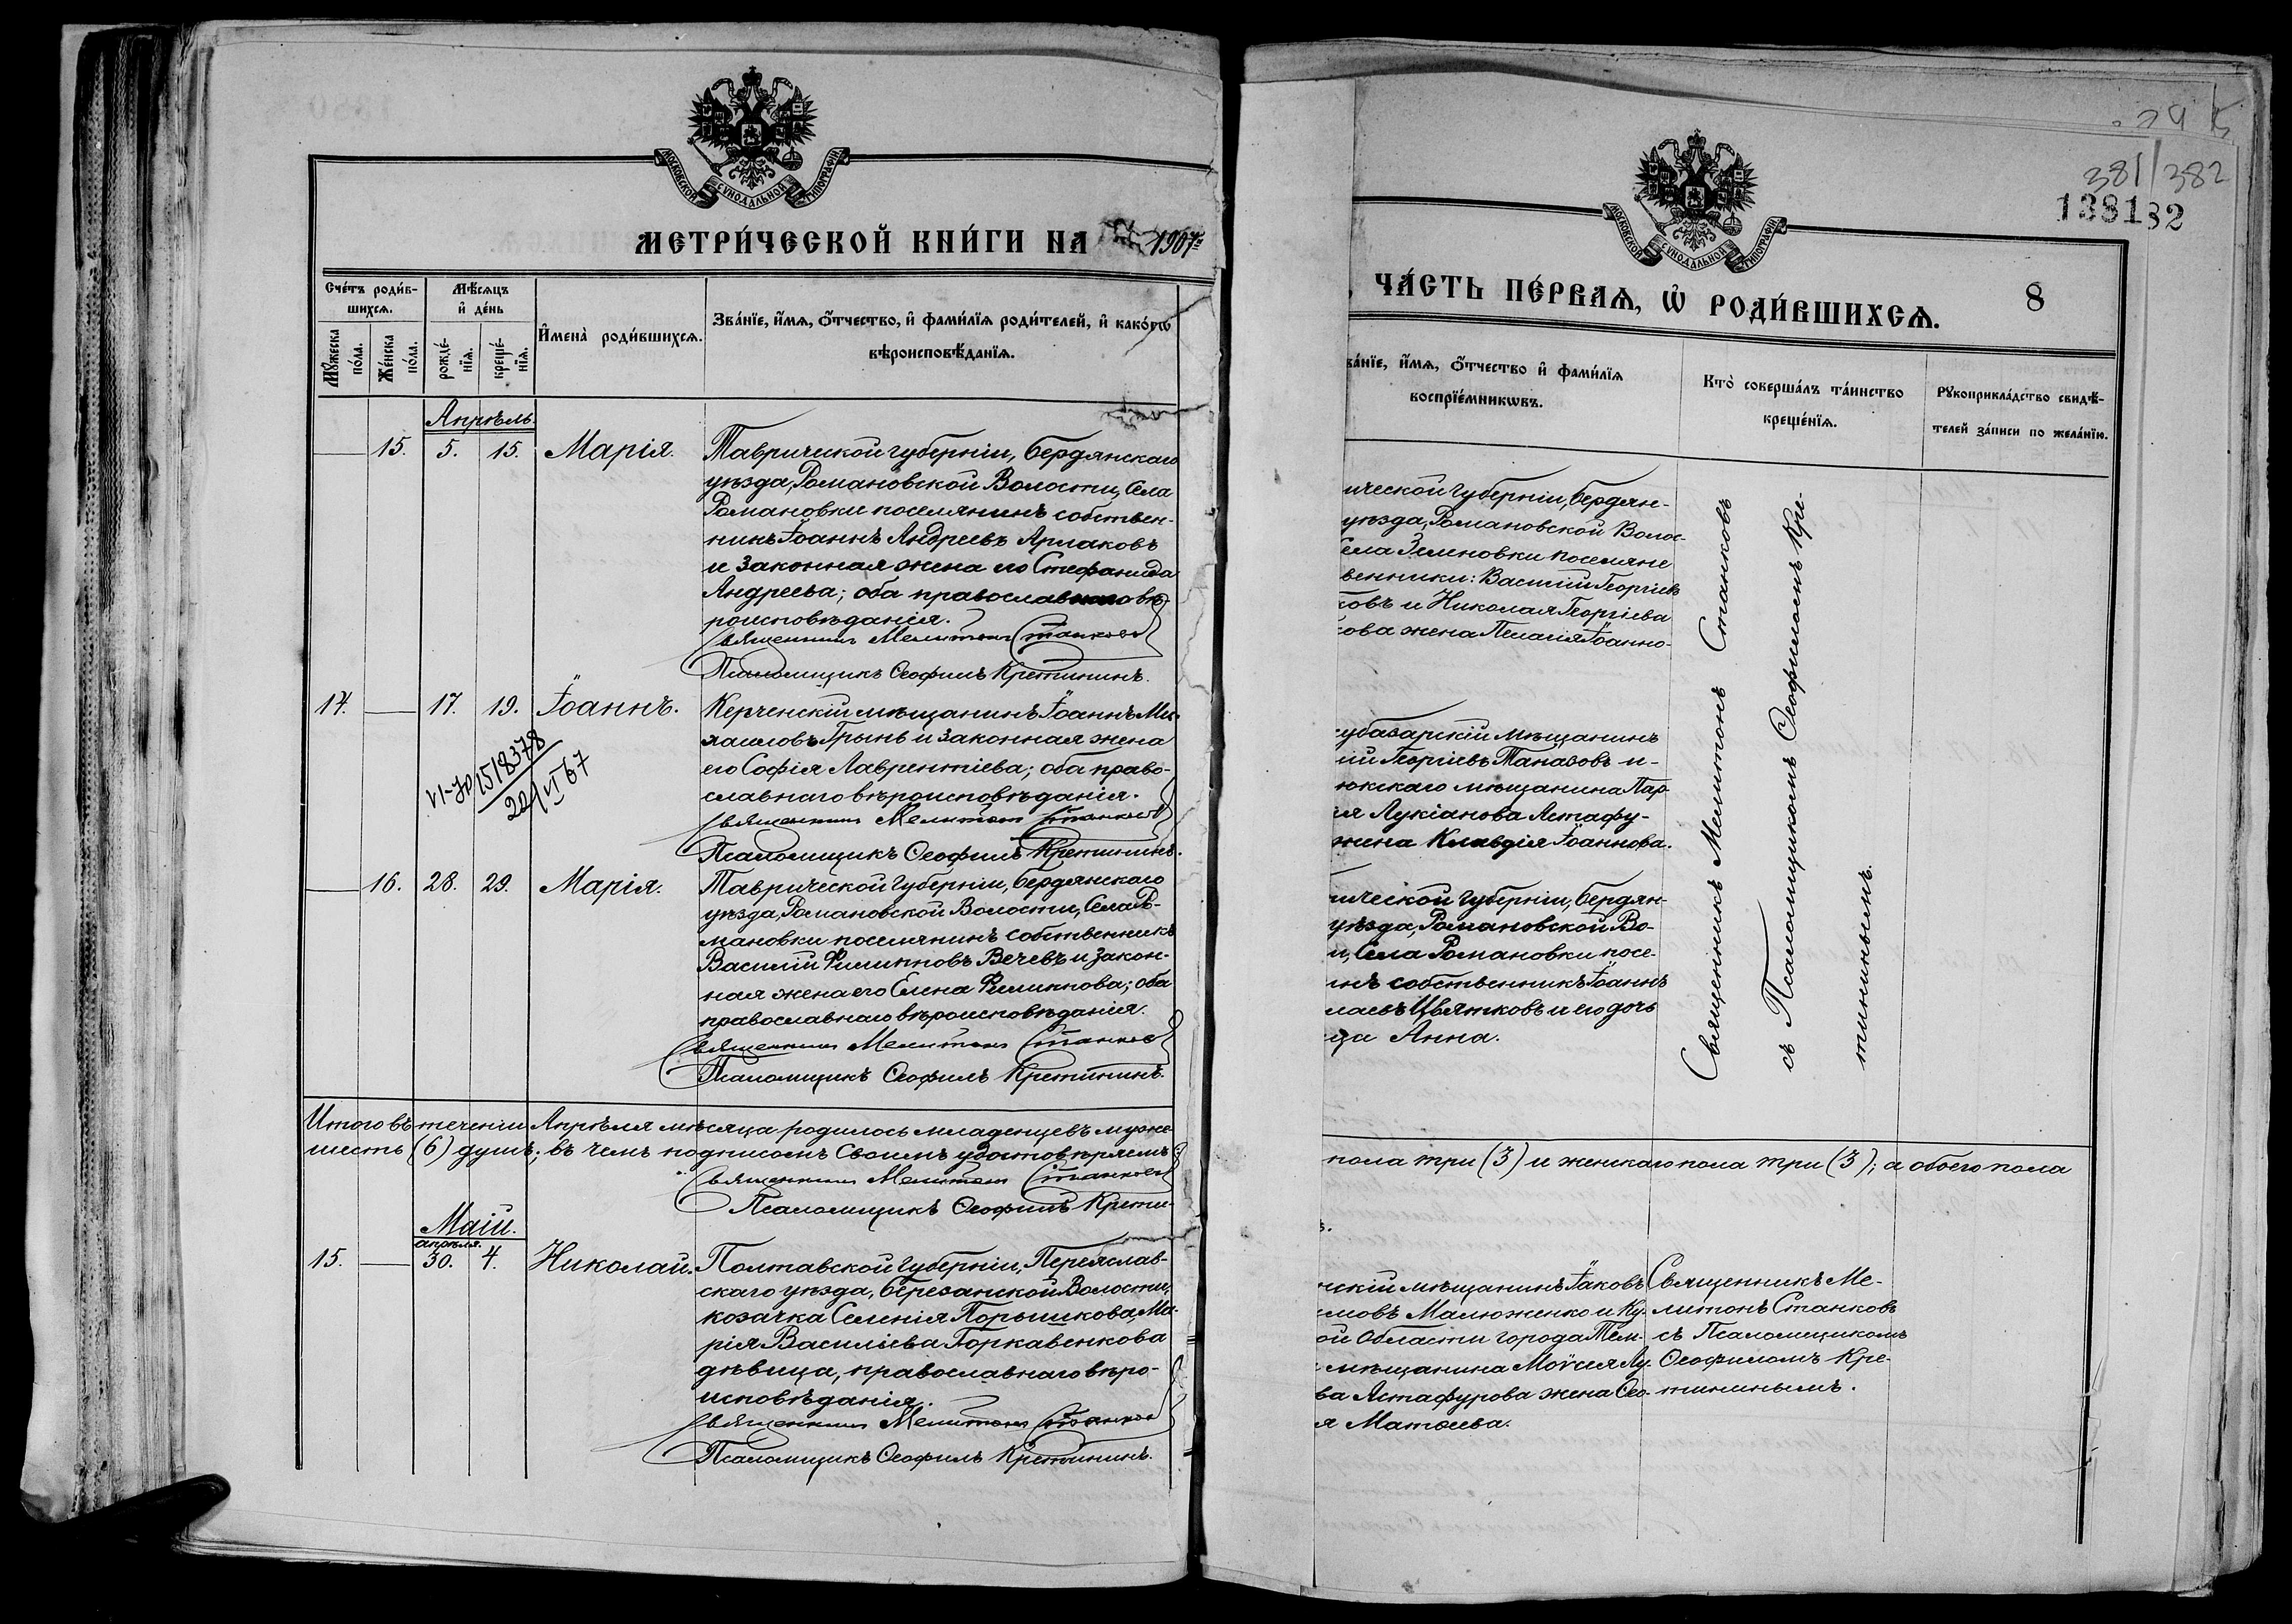 МОСКОВСКОЙ СѴНОДАЛЬНОЙ ТИПОГРАФІИ
МЕТРИ́ЧЕСКОЙ КНИ́ГИ НА 1907
Сче́тъ роди́в-
шихсѧ.
Мѣ́сѧцъ
и҆ де́нь
И҆мена̀ роди́вшихсѧ.
Зва́нїе, и҆́мѧ, ѻ҆́тчество, и҆ фами́лїѧ роди́телей, и҆ како́гѡ
вѣроисповѣ́данїѧ.
Мꙋ́жеска
по́ла.
Же́нска
по́ла.
рожде́-
нїѧ.
креще́-
нїѧ.
Апрѣль.
15. 5. 15. Марія.
Таврической губерніи, бердянскаго
уѣзда, Романовской Волости, Села
Романовки поселянинъ собствен-
никъ Іоаннъ Андреевъ Арлаковъ
и законная жена его Стефанида
Андреева; оба православнаго вѣ-
роисповѣданія.
Священникъ Мелитонъ Станковъ
Псаломщикъ Ѳеофилъ Кретининъ.
14. 17. 19. Іоаннъ.
Керченскій мѣщанинъ Іоаннъ Ми-
хаиловъ Грынь и законная жена
его Софія Лаврентіева; оба право-
славнаго вѣроисповѣданія.
Священникъ Мелитонъ Станковъ
Псаломщикъ Ѳеофилъ Кретининъ.
VI-ЯР 1518378
20/VI 67
16. 28. 29. Марія.
Таврической губерніи, бердянскаго
уѣзда, Романовской Волости, Села Ро-
мановки поселянинъ собственникъ
Василій Филипповъ Вечевъ и закон-
ная жена его Елена Филиппова; оба
православнаго вѣроисповѣданія.
Священникъ Мелитонъ Станковъ
Псаломщикъ Ѳеофилъ Кретининъ.
Итого въ теченіи Апрѣля мѣсяца родилось младенцевъ муже-
шесть (6) душъ; въ чемъ подписомъ Своимъ удостовѣряемъ:
Священникъ Мелитонъ Станковъ
Псаломщикъ Ѳеофилъ Крети-
Маій.
апрѣля.
15. 30. 4. Николай.
Полтавской губерніи, Переяслав-
скаго уѣзда, березанской Волости,
козачка Селенія Порышкова, Ма-
рія Василіева Горкавенкова
дѣвица, православнаго вѣро-
исповѣданія.
Священникъ Мелитонъ Станковъ
Псаломщикъ Ѳеофилъ Кретининъ.
381/382
138182
МОСКОВСКОЙ СѴНОДАЛЬНОЙ ТИПОГРАФІИ
, ЧА́СТЬ ПЕ́РВАѦ, Ѡ҆ РОДИ́ВШИХСѦ. 8
ва́нїе, и҆́мѧ, ѻ҆́тчество и҆ фами́лїѧ
воспрїе́мникѡвъ.
Кто̀ соверша́лъ та́инство
креще́нїѧ.
Рꙋкоприкла́дство свидѣ́-
телей за́писи по жела́нїю.
ической губерніи, бердян-
уѣзда, Романовской Волос-
Села Зеленовки поселяне
венники: Василій Георгіевъ
ковъ и Николая Георгіева
кова жена Пелагія Іоанно-
субазарскій мѣщанинъ
ій Георгіевъ Танасовъ и-
юкскаго мѣщанина Пар-
ія Лукіанова Астафу-
жена Клавдія Іоаннова.
ической губерніи, бердян-
уѣзда, Романовской Во-
и, Села Романовки посе-
инъ собственникъ Іоаннъ
лаевъ Цвятковъ и его дочь
ца Анна.
Священникъ Мелитонъ Станковъ
съ Псаломщикомъ Ѳеофиломъ Кре-
тининымъ.
пола три (3) и женскаго пола три (3); а обоего пола
ъ.
нскій мѣщанинъ Іаковъ
имовъ Малюженко и Ку-
ой Области города Тем-
мѣщанина Моѵсея Лу-
ва Астафурова жена Ѳео-
я Матѳеева.
Священникъ Ме-
литонъ Станковъ
съ Псаломщикомъ
Ѳеофиломъ Кре-
тининымъ.